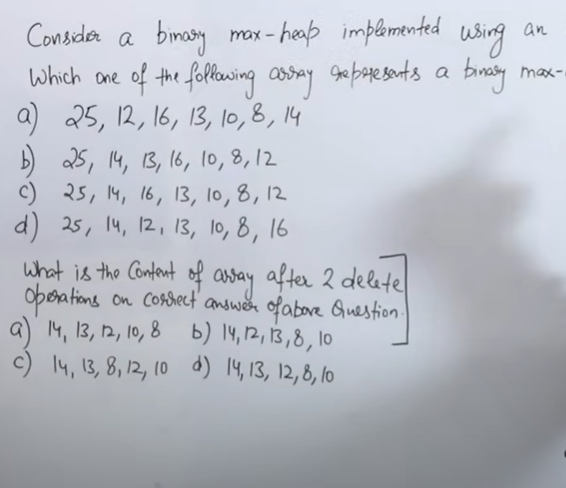 Consider a binary max-heap implemented using an
Which one of the following array represents a binary max-
a) 25, 12, 16, 13, 10, 8, 14
b) 25, 14, 13, 16, 10, 8, 12
c) 25, 14, 16, 13, 10, 8, 12
d) 25, 14, 12, 13, 10, 8, 16
What is the Content of array after 2 delete
Operations on correct answer of above Question.
a) 14, 13, 12, 10, 8 b) 14, 12, 13, 8, 10
c) 14, 13, 8, 12, 10 d) 14, 13, 12, 8, 10